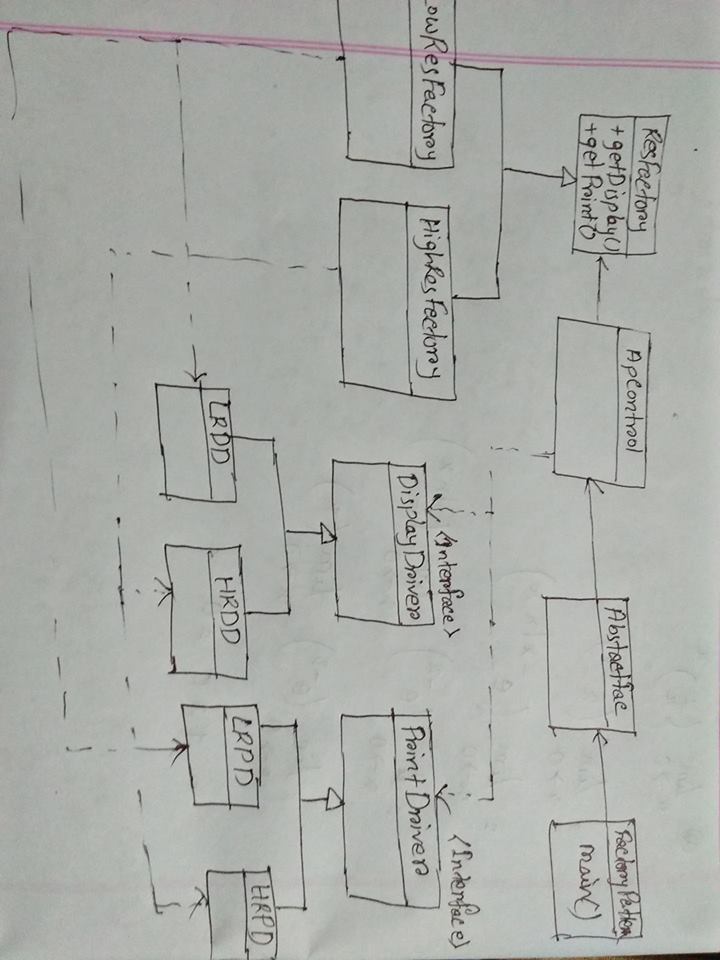 ResFectory
+getDisplay()
+getPrint()
ApControl
AbstactFac
FactoryPattern
main()
LowResFectory
HighResFectory
<Interface>
DisplayDriver
<Interface>
PrintDriver
LRDD
HRDD
LRPD
HRPD